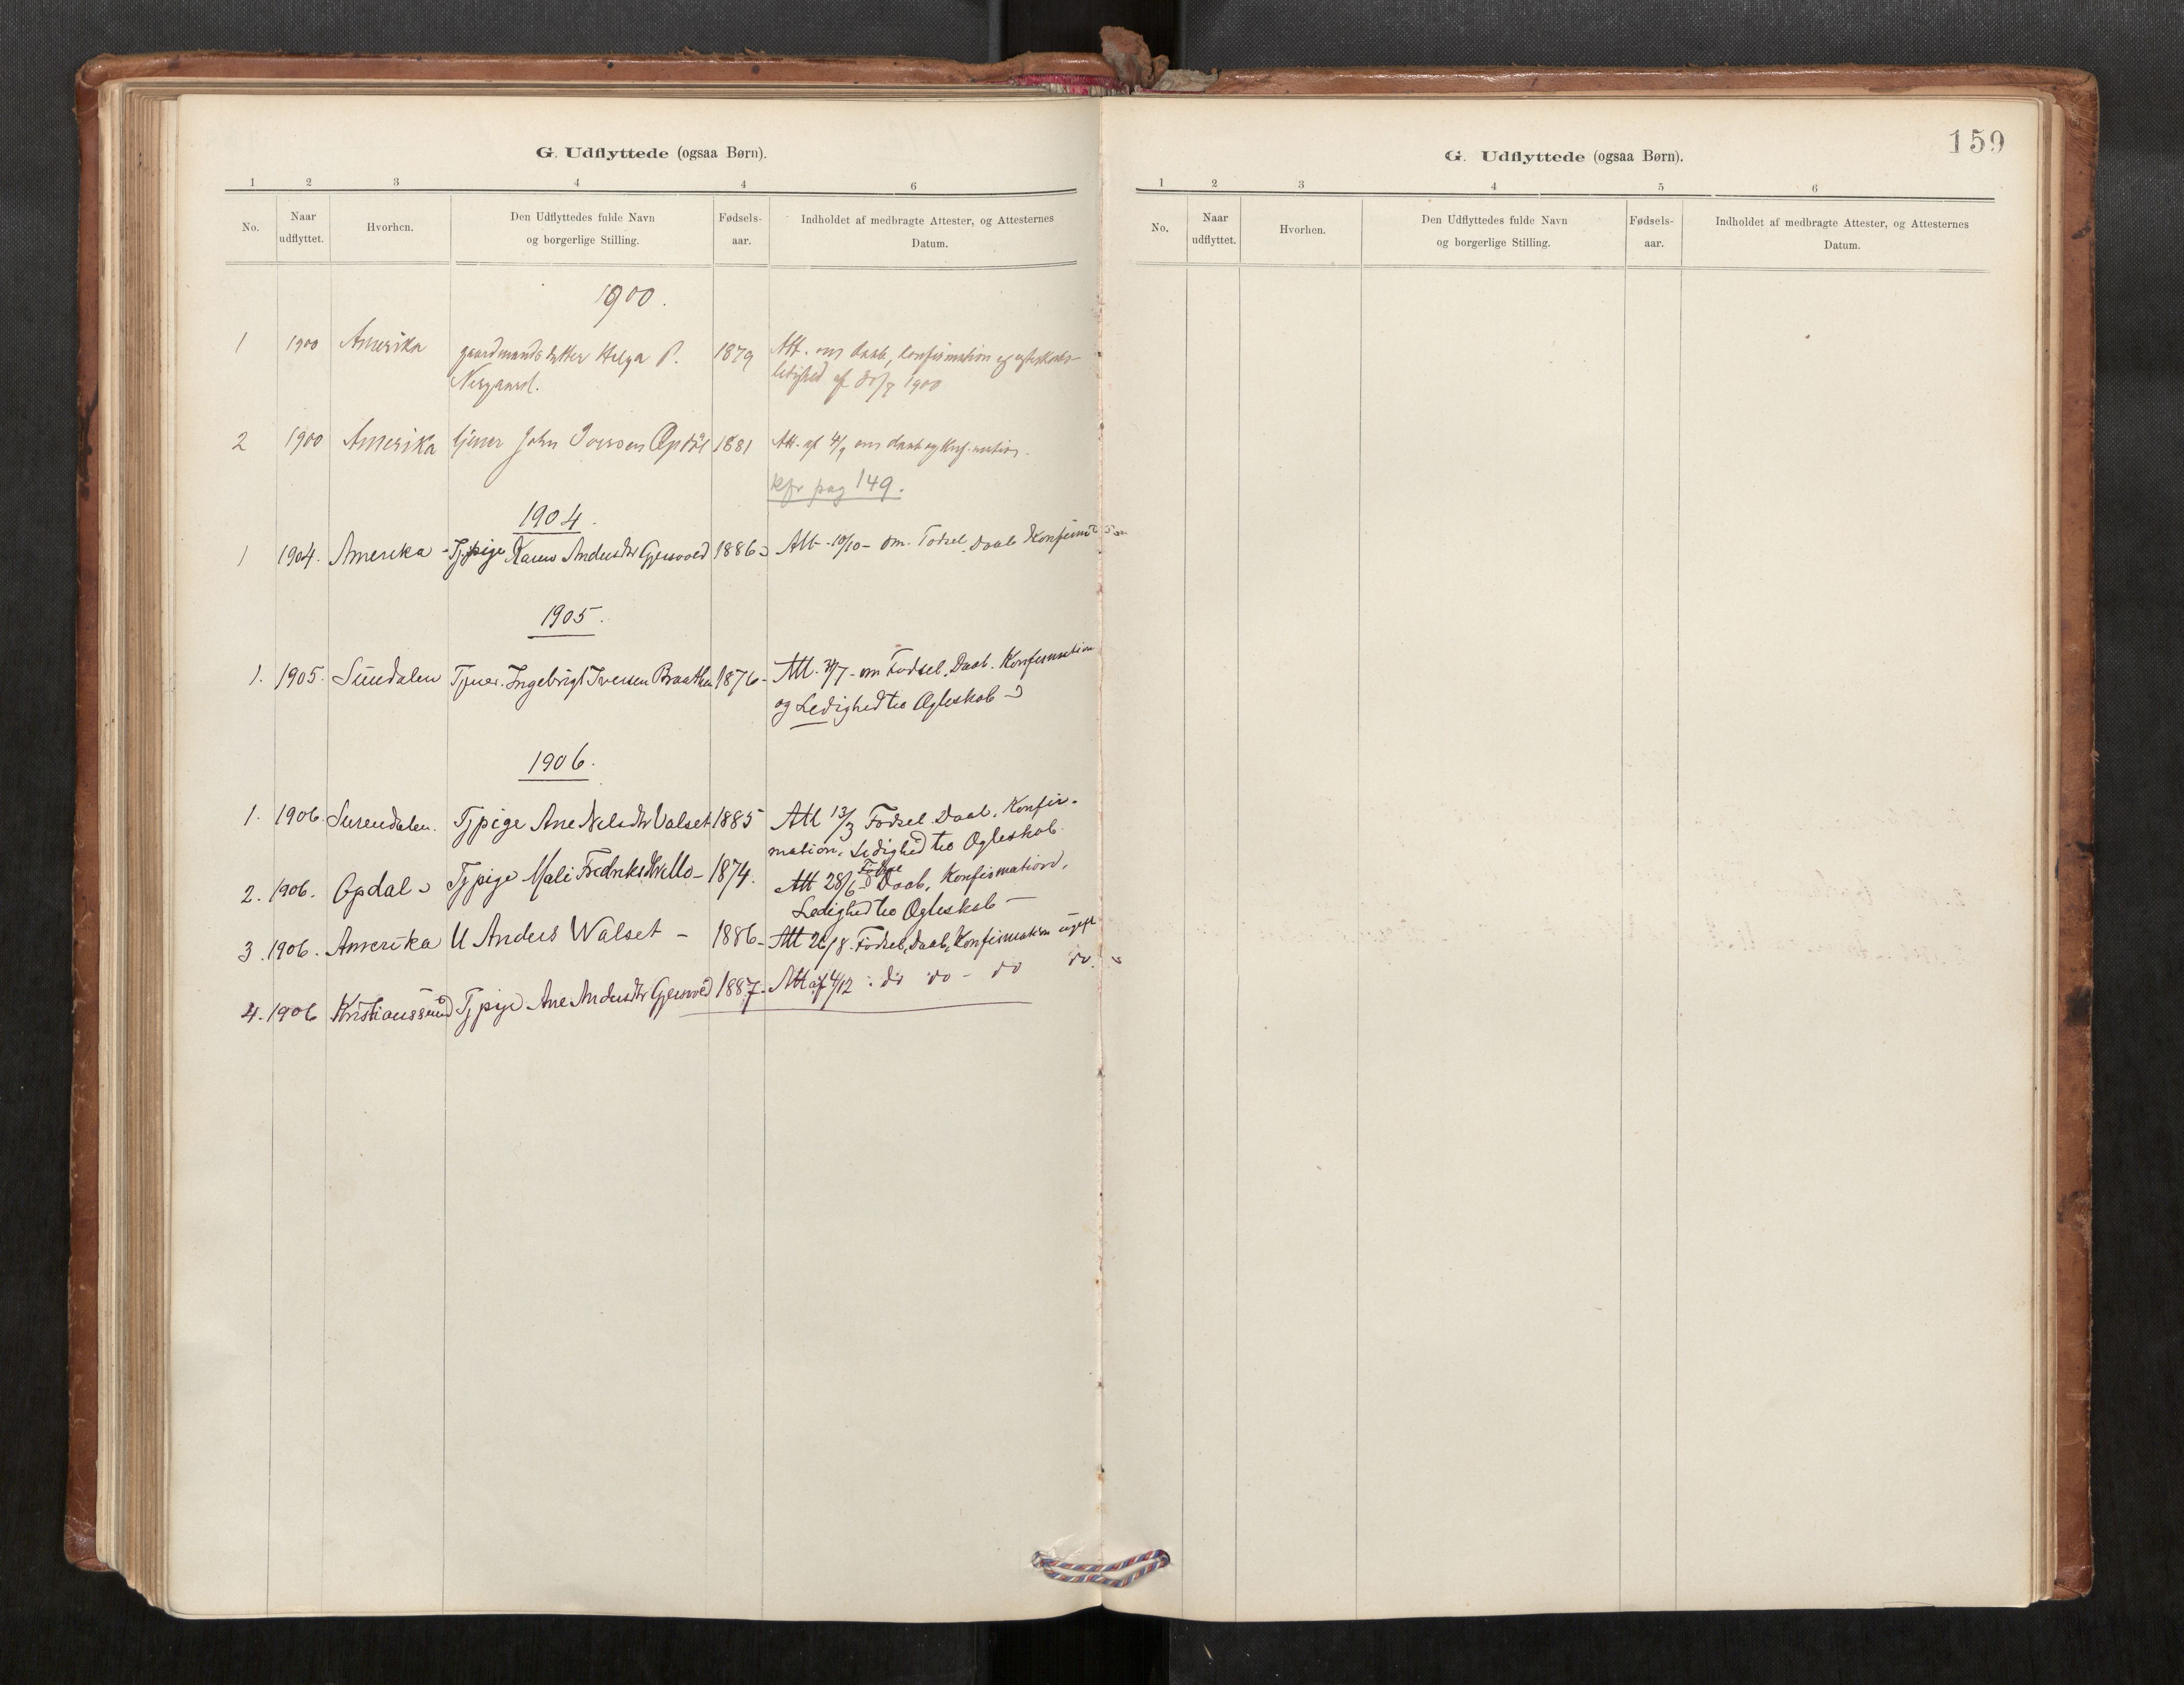 G. Udflyttede (ogsaa Børn).
1 2 3 4 4 6
No. Naar udflyttet. Hvorhen. Den Udflyttedes fulde Navn og borgerlige Stilling. Fødsels-aar. Indholdet af medbragte Attester, og Attesternes Datum.
1900.
1 1900 Amerika gaardmandsdatter Helga P. 1879 Att. om daab, konfirmation og ægteskabs-
Nergaard. ledighed af 1900
2 1900 Amerika tjener John Iversen Opdøl 1881 Att. af 4/9 om daab og konfirmation.
kfr pag 149.
1904.
1 1904. Amerika - Tjpige Karen Andersdtr Gjersvold 1886 Att - 10/10 - om Fødsel Daab Konfirmation
1905.
1. 1905. Sundalen Tjener. Ingebrigt Iversen Braathen 1876 - Att. - om Fødsel. Daab. Konfirmation
og Ledighed til Ægteskab -
1906.
1. 1906. Surendalen. Tjpige Ane Nilsdtr Valset 1885 Att 13/3 Fødsel Daab, Konfir-
mation, Ledighed til Ægteskab
2. 1906. Opdal - Tjpige Mali Fredriksdtr Mo - 1874. Att 28/6 - Fødsel Daab, Konfirmation,
Ledighed til Ægteskab -
3. 1906. Amerika U Anders Walset - 1886 - Att 26/8. Fødsel, Daab, Konfirmation ugift
4. 1906 Kristianssund Tjpige Ane Andersdtr Gjersvold 1887 - Att af 4/12 : do do - do do.
159
G. Udflyttede (ogsaa Børn).
1 2 3 4 5 6
No. Naar udflyttet. Hvorhen. Den Udflyttedes fulde Navn og borgerlige Stilling. Fødsels-aar. Indholdet af medbragte Attester, og Attesternes Datum.